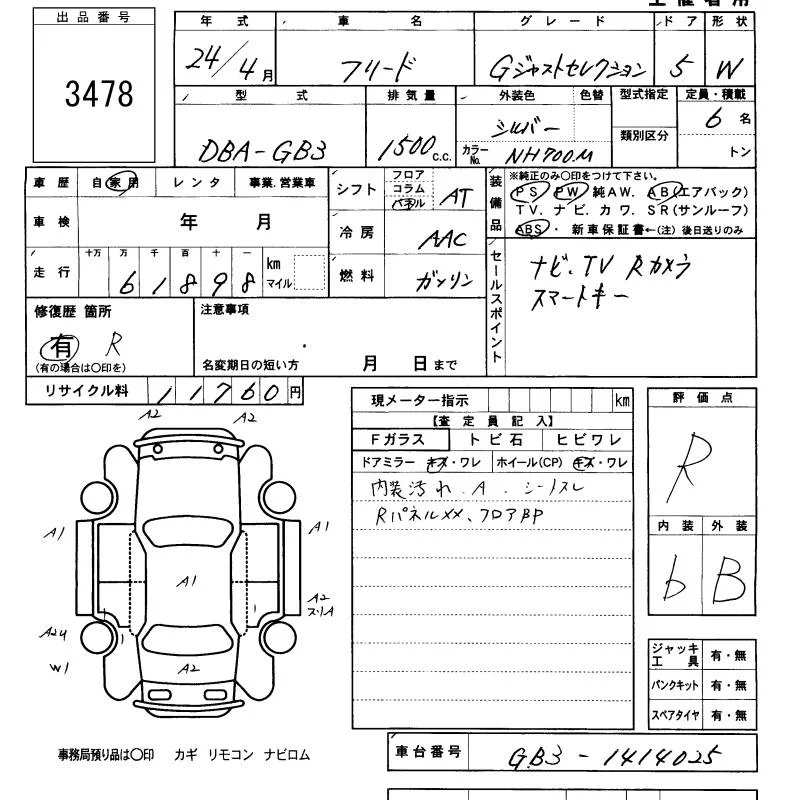 出品番号
3478
年式 車名 グレード ドア 形状
24/4月 フリード Gジャストセレクション 5 W
型式 排気量 外装色 色替 型式指定 定員・積載
DBA-GB3 1500c.c. シルバー カラーNo. NH700M 類別区分 6名 トン
車歴 自家用 レンタ 事業.営業車
車検 年 月
走行 十万 万 千 百 十 一
61898 km マイル
シフト フロア コラム パネル AT
冷房 AAC
燃料 ガソリン
装備品 ※純正のみ〇印をつけて下さい。
PS PW 純AW. AB(エアバック)
TV. ナビ. カワ. SR(サンルーフ)
ABS・ 新車保証書←(注) 後日送りのみ
セールスポイント
ナビ、TV Rカメラ
スマートキー
修復歴 箇所
有 R
(有の場合は〇印を)
注意事項
名変期日の短い方 月 日まで
リサイクル料 11760円
現メーター指示 km
【査定員記入】
Fガラス トビ石 ヒビワレ
ドアミラー キズ・ワレ ホイール(CP) キズ・ワレ
内装汚れ.A.シートスレ
Rパネル××、フロアBP
評価点
R
内装 外装
b B
A2 A2
A1 A1
A1
A2
スリA
A2U
W1
A2
ジャッキ工具 有・無
パンクキット 有・無
スペアタイヤ 有・無
事務局預り品は〇印 カギ リモコン ナビロム
車台番号 GB3-1414025